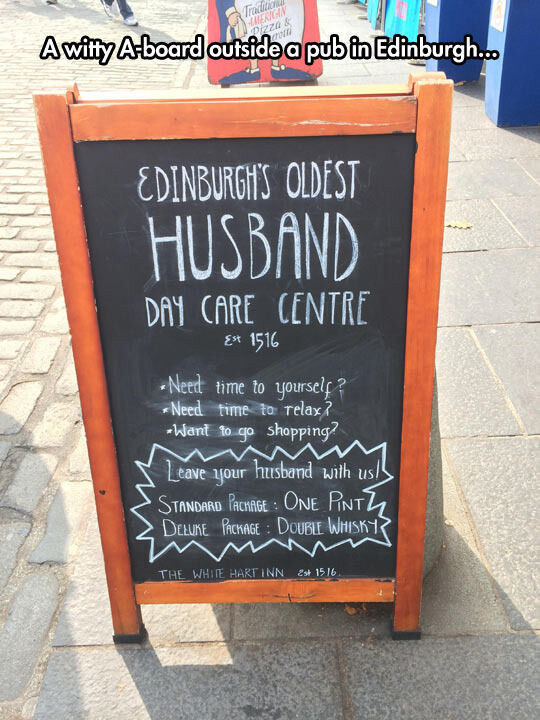 A witty A-board outside a pub in Edinburgh...
Traditional
AMERICAN
Pizza &
EDINBURGH'S OLDEST
HUSBAND
DAY CARE CENTRE
Est 1516
*Need time to yourself?
*Need time to relax?
*Want to go shopping?
Leave your husband with us!
STANDARD PACKAGE : ONE PINT
DELUXE PACKAGE : DOUBLE WHISKY
THE WHITE HART INN Est 1516.